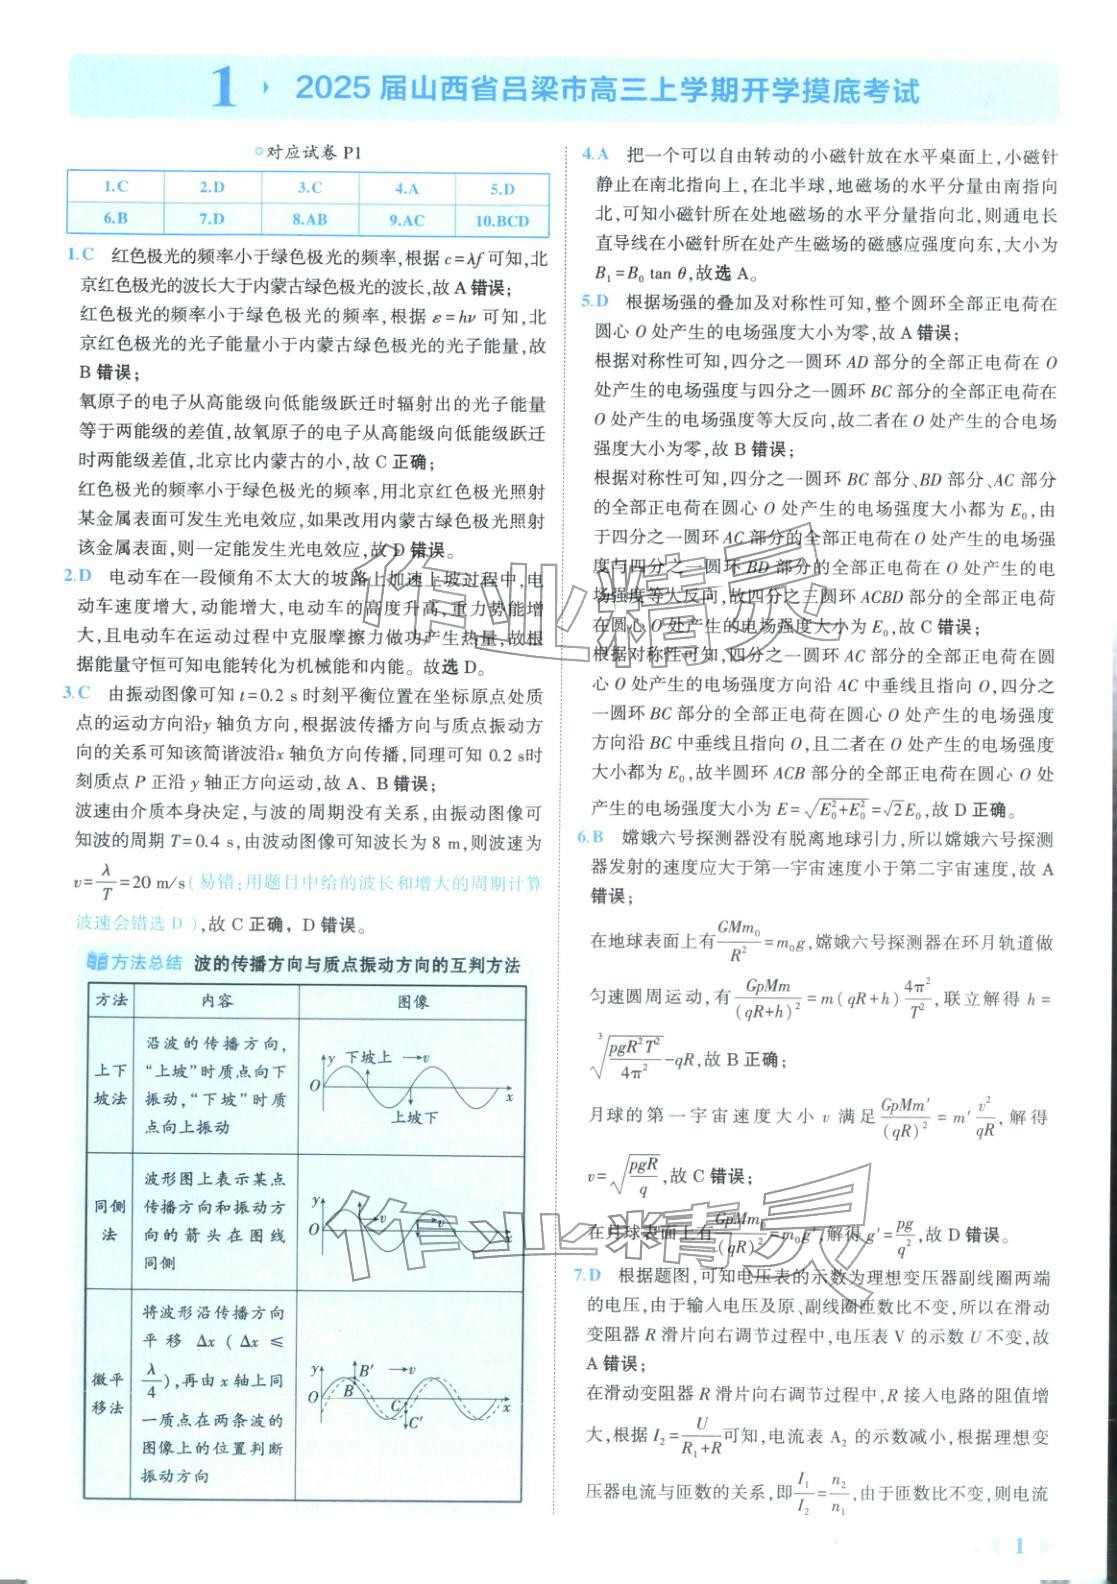 1 2025届山西省吕梁市高三上学期开学摸底考试
对应试卷 P1
1.C 2.D 3.C 4.A 5.D
6.B 7.D 8.AB 9.AC 10.BCD
1.C 红色极光的频率小于绿色极光的频率,根据 c=λf 可知,北
京红色极光的波长大于内蒙古绿色极光的波长,故 A 错误;
红色极光的频率小于绿色极光的频率,根据 ε=hν 可知,北
京红色极光的光子能量小于内蒙古绿色极光的光子能量,故
B 错误;
氧原子的电子从高能级向低能级跃迁时辐射出的光子能量
等于两能级的差值,故氧原子的电子从高能级向低能级跃迁
时两能级差值,北京比内蒙古的小,故 C 正确;
红色极光的频率小于绿色极光的频率,用北京红色极光照射
某金属表面可发生光电效应,如果改用内蒙古绿色极光照射
该金属表面,则一定能发生光电效应,故 D 错误。
2.D 电动车在一段倾角不太大的坡路上加速上坡过程中,电
动车速度增大,动能增大,电动车的高度升高,重力势能增
大,且电动车在运动过程中克服摩擦力做功产生热量,故根
据能量守恒可知电能转化为机械能和内能。故选 D。
3.C 由振动图像可知 t=0.2 s 时刻平衡位置在坐标原点处质
点的运动方向沿y 轴负方向,根据波传播方向与质点振动方
向的关系可知该简谐波沿x 轴负方向传播,同理可知 0.2 s时
刻质点 P 正沿 y 轴正方向运动,故 A、B 错误;
波速由介质本身决定,与波的周期没有关系,由振动图像可
知波的周期 T=0.4 s,由波动图像可知波长为 8 m,则波速为
v=λ/T=20 m/s(易错:用题目中给的波长和增大的周期计算
波速会错选 D),故 C 正确, D 错误。
方法总结 波的传播方向与质点振动方向的互判方法
方法 内容 图像
上下坡法 沿波的传播方向,
“上坡”时质点向下
振动,“下坡”时质
点向上振动
y 下坡上 →v
O x
上坡下
同侧法 波形图上表示某点
传播方向和振动方
向的箭头在图线
同侧
y →v
O x
微平移法 将波形沿传播方向
平移 Δx(Δx≤
λ/4),再由 x 轴上同
一质点在两条波的
图像上的位置判断
振动方向
y B′ →v
O B C x
C′
4.A 把一个可以自由转动的小磁针放在水平桌面上,小磁针
静止在南北指向上,在北半球,地磁场的水平分量由南指向
北,可知小磁针所在处地磁场的水平分量指向北,则通电长
直导线在小磁针所在处产生磁场的磁感应强度向东,大小为
B₁=B₀ tan θ,故选 A。
5.D 根据场强的叠加及对称性可知,整个圆环全部正电荷在
圆心 O 处产生的电场强度大小为零,故 A 错误;
根据对称性可知,四分之一圆环 AD 部分的全部正电荷在 O
处产生的电场强度与四分之一圆环 BC 部分的全部正电荷在
O 处产生的电场强度等大反向,故二者在 O 处产生的合电场
强度大小为零,故 B 错误;
根据对称性可知,四分之一圆环 BC 部分、BD 部分、AC 部分
的全部正电荷在圆心 O 处产生的电场强度大小都为 E₀,由
于四分之一圆环 AC 部分的全部正电荷在 O 处产生的电场强
度与四分之一圆环 BD 部分的全部正电荷在 O 处产生的电
场强度等大反向,故四分之三圆环 ACBD 部分的全部正电荷
在圆心 O 处产生的电场强度大小为 E₀,故 C 错误;
根据对称性可知,四分之一圆环 AC 部分的全部正电荷在圆
心 O 处产生的电场强度方向沿 AC 中垂线且指向 O,四分之
一圆环 BC 部分的全部正电荷在圆心 O 处产生的电场强度
方向沿 BC 中垂线且指向 O,且二者在 O 处产生的电场强度
大小都为 E₀,故半圆环 ACB 部分的全部正电荷在圆心 O 处
产生的电场强度大小为 E=√(E₀²+E₀²)=√2E₀,故 D 正确。
6.B 嫦娥六号探测器没有脱离地球引力,所以嫦娥六号探测
器发射的速度应大于第一宇宙速度小于第二宇宙速度,故 A
错误;
在地球表面上有GMm₀/R²=m₀g,嫦娥六号探测器在环月轨道做
匀速圆周运动,有GpMm/(qR+h)²=m(qR+h)4π²/T²,联立解得 h=
³√(pgR²T²/4π²)-qR,故 B 正确;
月球的第一宇宙速度大小 v 满足GpMm′/(qR)²=m′v²/qR,解得
v=√(pgR/q),故 C 错误;
在月球表面上有GpMm₀/(qR)²=m₀g′,解得 g′=pg/q²,故 D 错误。
7.D 根据题图,可知电压表的示数为理想变压器副线圈两端
的电压,由于输入电压及原、副线圈匝数比不变,所以在滑动
变阻器 R 滑片向右调节过程中,电压表 V 的示数 U 不变,故
A 错误;
在滑动变阻器 R 滑片向右调节过程中,R 接入电路的阻值增
大,根据 I₂=U/(R₁+R)可知,电流表 A₂ 的示数减小,根据理想变
压器电流与匝数的关系,即I₁/I₂=n₂/n₁,由于匝数比不变,则电流
作业精灵
作业精灵
1